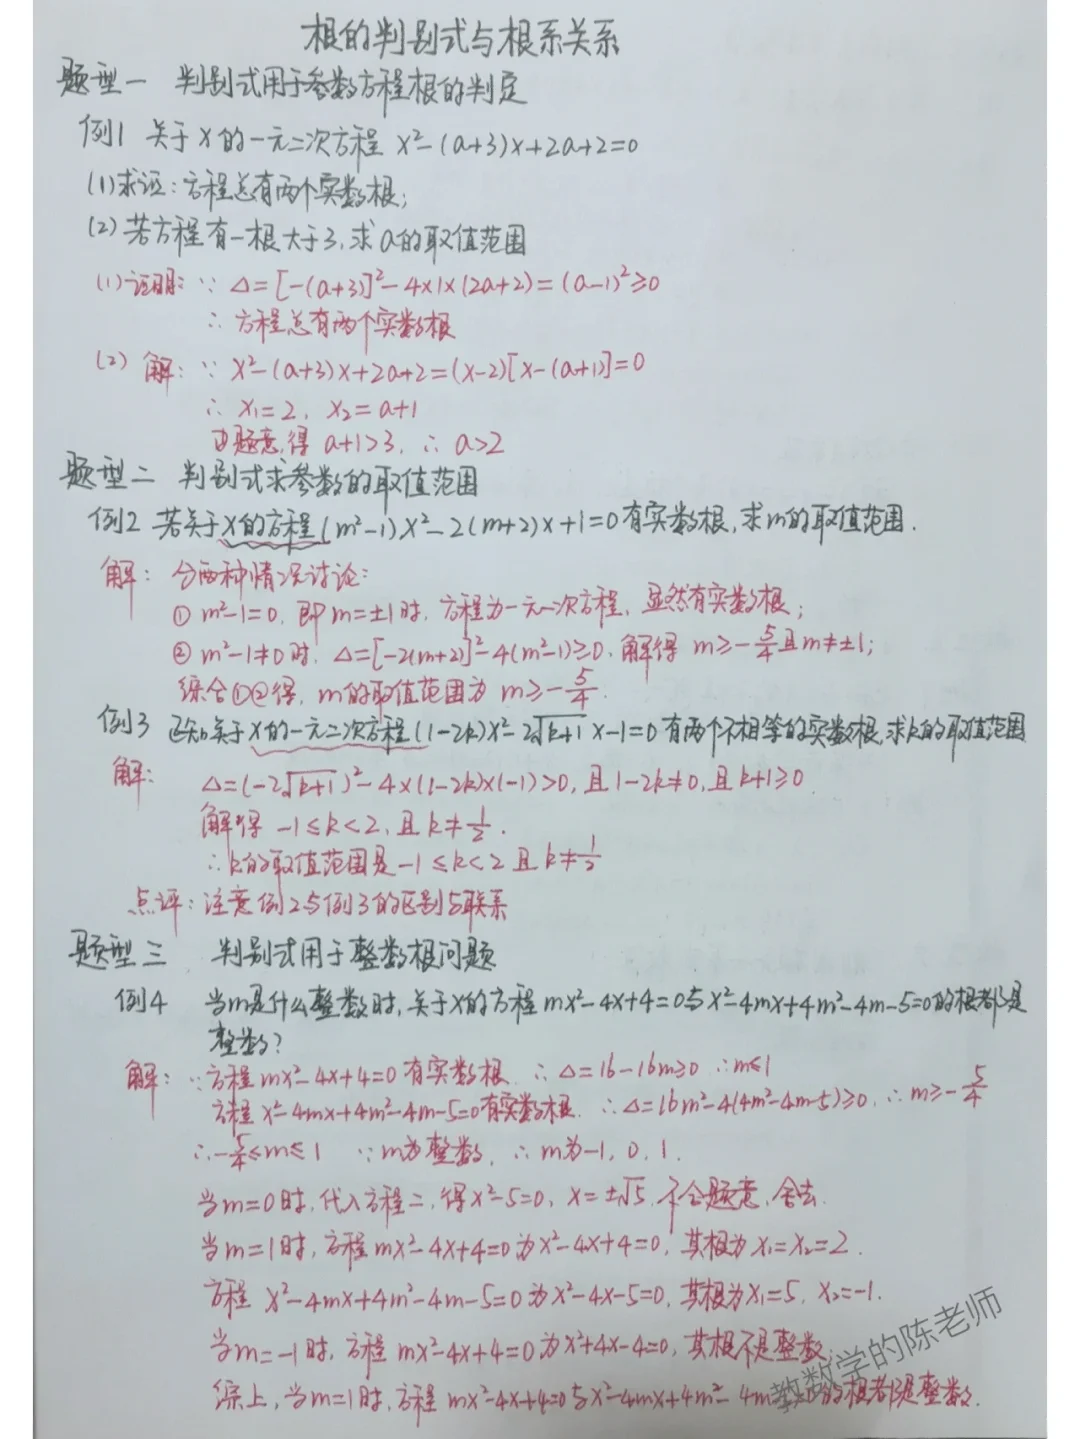 根的判别式与根系关系
题型一 判别式用于参数方程根的判定
例1 关于x的一元二次方程 x²-(a+3)x+2a+2=0
(1)求证:方程总有两个实数根;
(2)若方程有一根大于3,求a的取值范围
(1)证明: ∵ Δ=[-(a+3)]²-4×1×(2a+2)=(a-1)²≥0
∴ 方程总有两个实数根
(2) 解: ∵ x²-(a+3)x+2a+2=(x-2)[x-(a+1)]=0
∴ x₁=2, x₂=a+1
由题意,得 a+1>3, ∴ a>2
题型二 判别式求参数的取值范围
例2 若关于x的方程(m²-1)x²-2(m+2)x+1=0有实数根,求m的取值范围.
解: 分两种情况讨论:
① m²-1=0, 即m=±1时, 方程为一元一次方程, 显然有实数根;
② m²-1≠0时, Δ=[-2(m+2)]²-4(m²-1)≥0, 解得 m≥-5/4且m≠±1;
综合①②得, m的取值范围为 m≥-5/4.
例3 已知关于x的一元二次方程(1-2k)x²-2√(k+1) x-1=0有两个不相等的实数根,求k的取值范围
解: Δ=(-2√(k+1))²-4×(1-2k)×(-1)>0, 且1-2k≠0,且k+1≥0
解得 -1≤k<2, 且k≠1/2.
∴k的取值范围是-1≤k<2且k≠1/2
点评:注意例2与例3的区别与联系
题型三 判别式用于整数根问题
例4 当m是什么整数时,关于x的方程mx²-4x+4=0与x²-4mx+4m²-4m-5=0的根都是
整数?
解: ∵方程mx²-4x+4=0有实数根, ∴Δ=16-16m≥0 ∴m≤1
方程x²-4mx+4m²-4m-5=0有实数根. ∴Δ=16m²-4(4m²-4m-5)≥0, ∴m≥-5/4
∴-5/4≤m≤1 ∵m为整数, ∴m为-1, 0, 1.
当m=0时,代入方程二,得x²-5=0, x=±√5,不合题意,舍去.
当m=1时,方程mx²-4x+4=0为x²-4x+4=0,其根为x₁=x₂=2.
方程 x²-4mx+4m²-4m-5=0为x²-4x-5=0,其根为x₁=5, x₂=-1.
当m=-1时,方程mx²-4x+4=0为x²+4x-4=0,其根不是整数.
综上,当m=1时,方程mx²-4x+4=0与x²-4mx+4m²-4m 的根都是整数.
教数学的陈老师